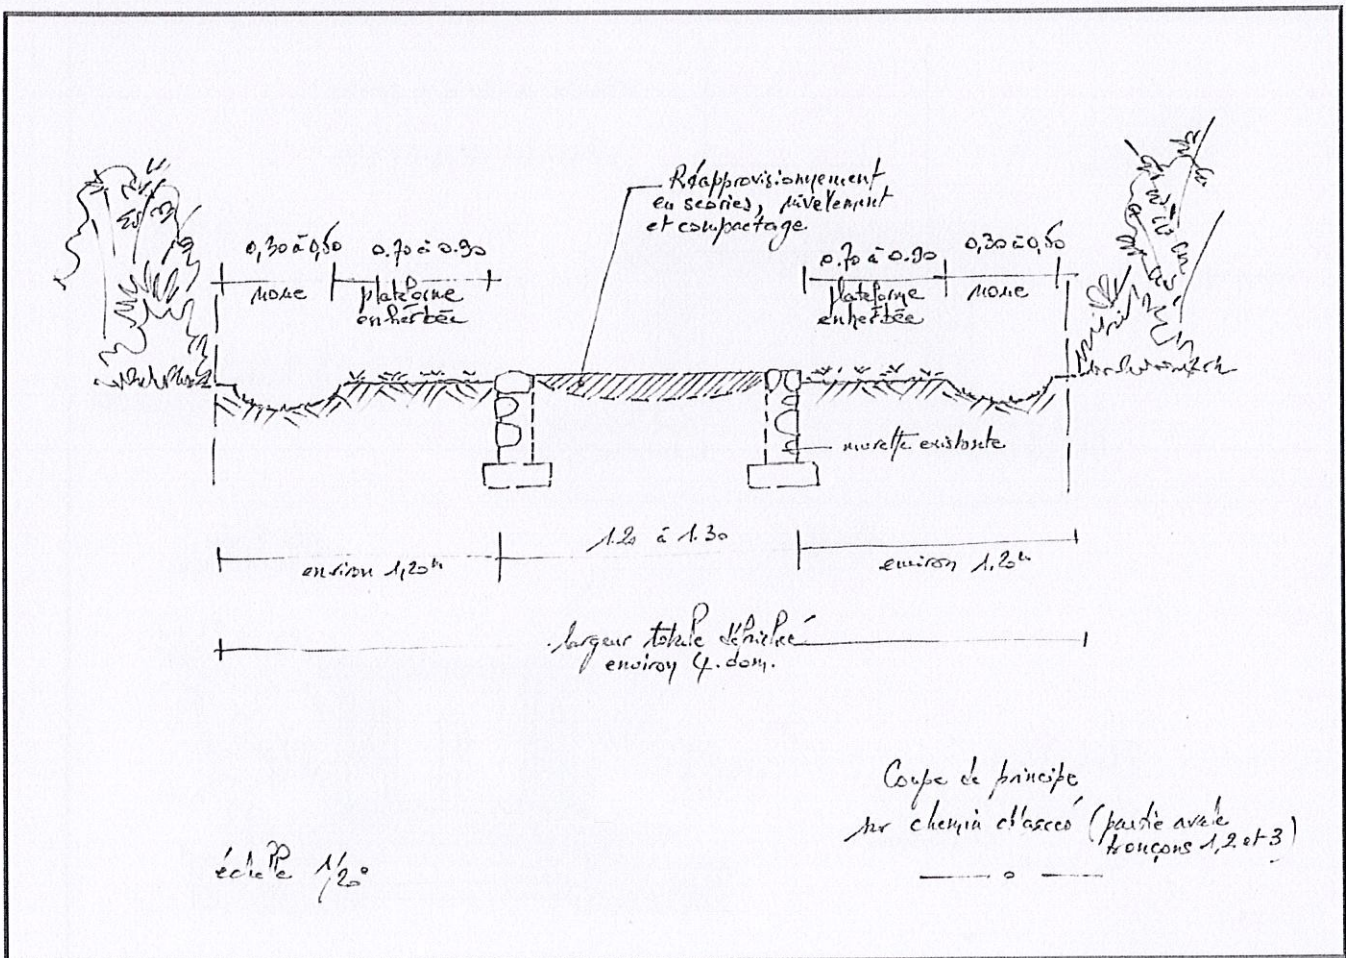 Réapprovisionnement
en scories, nivelement
et compactage.
0,30 à 0,50
0.70 à 0.90
noue
plateforme
enherbée
0.70 à 0.90
0,30 à 0,50
plateforme
enherbée
noue
murette existante
1.20 à 1.30
environ 1,20m
environ 1,20m
largeur totale défrichée
environ 4.00m.
Coupe de principe
sur chemin d'accès (partie avale
tronçons 1,2 et 3)
échelle 1/20°